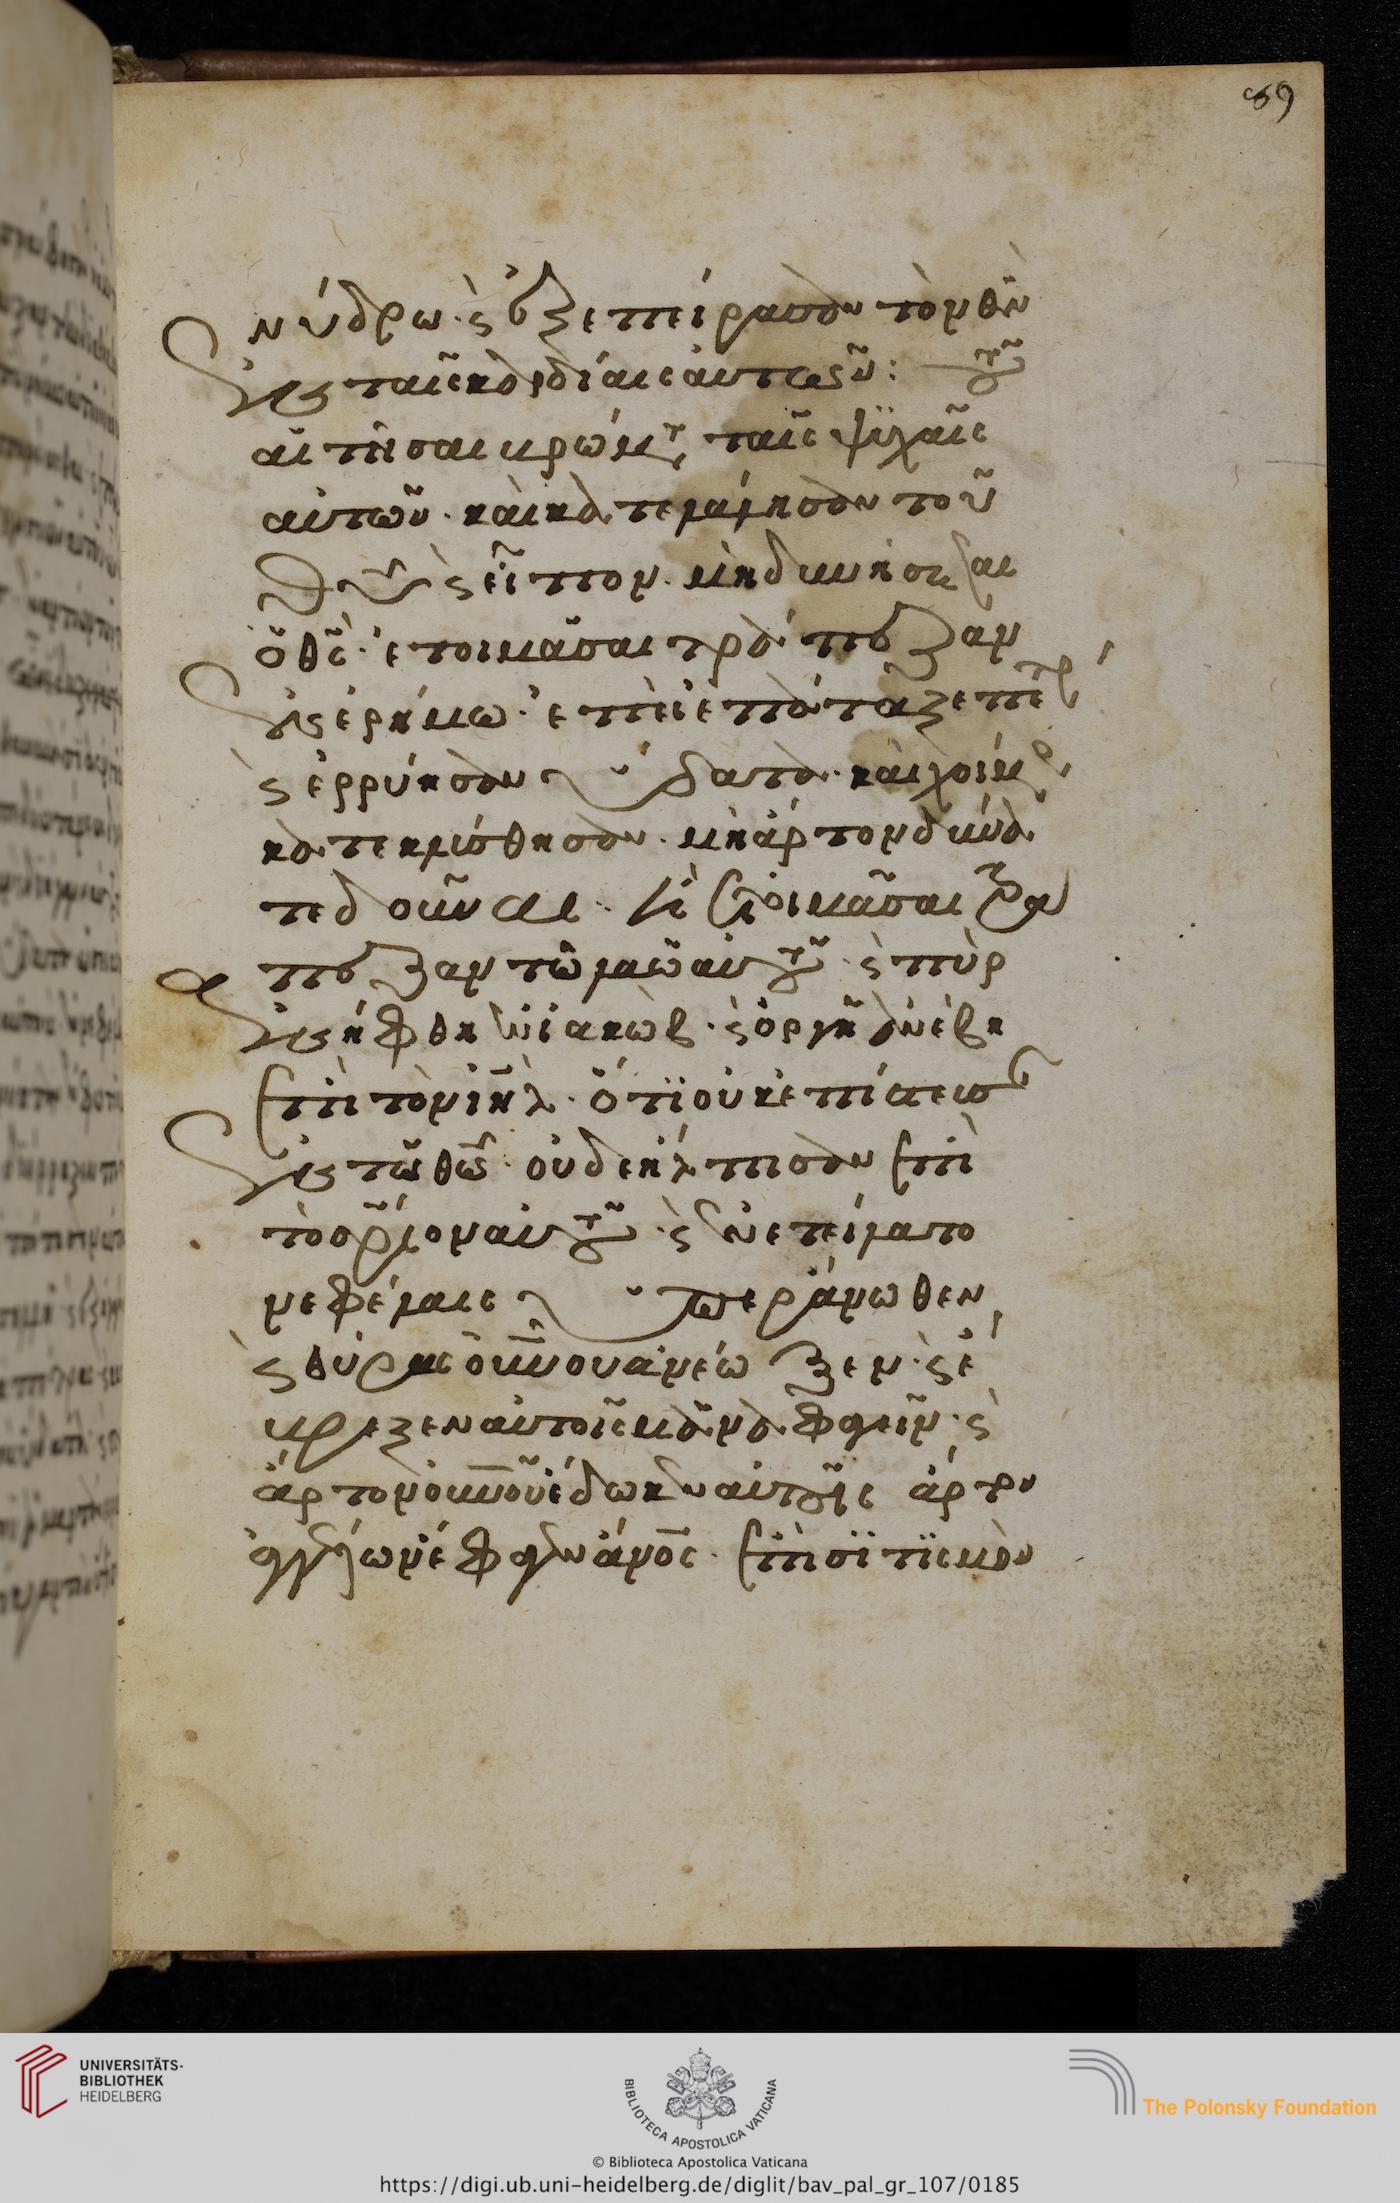 89
νύδρω· ϛ ἐξεπείρασαν τὸν θν
ἐν ταῖς καρδίαις αὐτῶν: τοῦ
αἰτῆσαι βρώματα ταῖς ψυχαῖς
αὐτῶν· καὶ κατεγάγησαν τοῦ
θυ ϛ εἶπον· μὴ δυνήσεται
ὁ θς· ἑτοιμᾶσαι τράπεζαν
ἐν ἐρήμω· ἐπεὶ ἐπάταξε πέτρ
ϛ ἐρρύησαν ὕδατα· καὶ χοίμαρ
κατεκλύσθησαν· μὴ ἄρτον δύνα
τε δοῦναι· ἢ ἑτοιμᾶσαι τρά
πεζαν τῶ λαῶ αὐτοῦ· ϛ πὺρ
ἀνήφθη ἐν ἰακὼβ· ϛ ὀργὴ ἀνέβη
ἐπὶ τὸν ιηλ· ὅτι οὐκ ἐπίστευσ
ἐν τῶ θω· οὐδὲ ἤλπισαν ἐπὶ
τὸ σριον αὐτοῦ· ϛ ἐνετείλατο
νεφέλαις ὑπεράνωθεν
ϛ θύρας οὐνου ἀνέωξεν· ϛ ἔ
βρεξεν αὐτοῖς μάννα φαγεῖν· ϛ
ἄρτον οὐνοῦ ἔδωκεν αὐτοῖς ἄρτον
ἀγγέλων ἔφαγεν ἄνος· ἐπισιτισμὸν
UNIVERSITÄTS-
BIBLIOTHEK
HEIDELBERG
BIBLIOTECA APOSTOLICA VATICANA
The Polonsky Foundation
© Biblioteca Apostolica Vaticana
https://digi.ub.uni-heidelberg.de/diglit/bav_pal_gr_107/0185